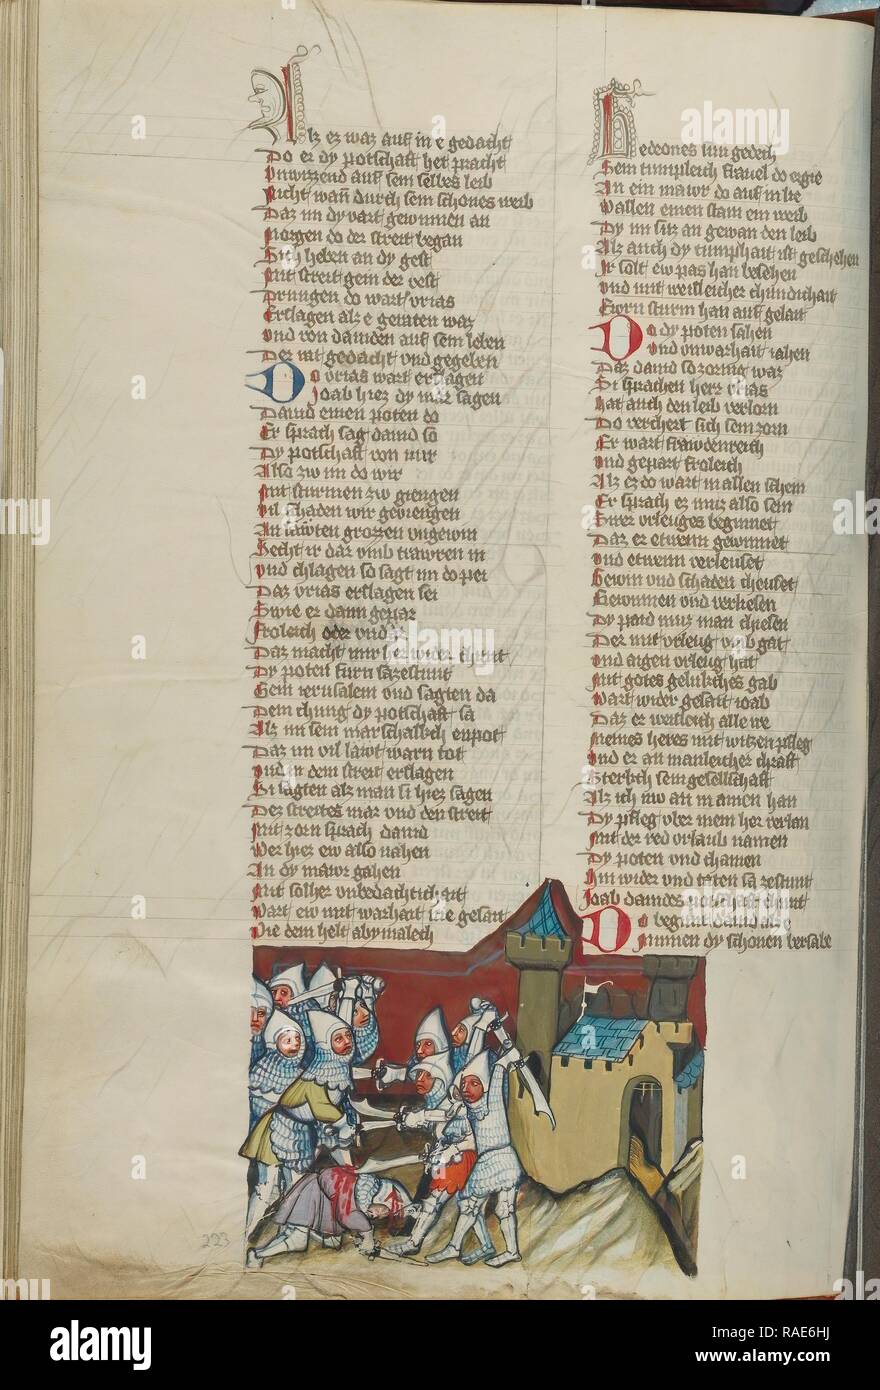 Alz ez waz auf in e gedacht
Do er dy potschaft het pracht
Unwizzend auf sein selbes leib
Nicht wan durch sein schones weib
Daz im dy vart gewunnen an
Morgen do der streit began
Sich heben an dy gest
Mit streit gein der vest
Drungen do wart vrias
Erslagen alz e geraten waz
Vnd von dauiden auf sein leben
Der mit gedacht vnd gegeben
Do vrias wart erslagen
Joab hiez dy mar sagen
Dauid einen poten do
Er sprach sag dauid so
Dy potschaft von mir
Also zw im do wir
Mit sturmen zw giengen
Vil schaden wir geviengen
An lawten grozzen vngewin
Secht ir daz vmb trawren in
Vnd chlagen so sagt im do pei
Daz vrias erslagen sei
Swie er dann gepar
Froleich oder vnd
Daz macht mir her wider chunt
Dy poten furn sa zestunt
Gein ierusalem vnd sagten da
Dem chung dy potschaft sa
Alz im sein marschalch enpot
Daz im vil lawt warn tot
Vnd in dem streit erslagen
Si sagten alz man si hiez sagen
Dez streites mar vnd den streit
Mit zorn sprach dauid
Wer hiez ew also nahen
An dy mawr gahen
Mit solher vnbedachtichait
Wart ew mit warhait ie gesait
Wie dem helt abymalech
Gedeones sun gedech
Sein tumpleich frauel do ergie
An ein mawr do auf in lie
Vallen einen stain ein weib
Dy im sus an gewan den leib
Alz auch dy tumphait ist geschehen
Ir solt ew pas han besehen
Vnd mit weisleicher chundichait
Ewrn sturm han auf gelait
Do dy poten sahen
Vnd vnwarhait iahen
Daz dauid so zornig waz
Si sprachen herr vrias
Hat auch den leib verlorn
Do verchert sich sein zorn
Er wart frawdenreich
Vnd gepart froleich
Alz ez do wart in allen schein
Er sprach ez muz also sein
Swer vrleuges beginnet
Daz er etwenn gewinnet
Vnd etwenn verleuset
Gewin vnd schaden cheuset
Gewinnen vnd verliesen
Dy paid muz man chiesen
Der mit vrleug vmb gat
Vnd aigen vrleug hat
Mit gotes gelukches gab
Wart wider gesait ioab
Daz er weisleich alle we
Meines heres mit witzen pfleg
Vnd er an manleicher chraft
Sterkch sein gesellschaft
Alz ich nw an in ainen han
Dy pfleg vber mein her verlan
Mit der red vrlaub namen
Dy poten vnd chamen
Hin wider vnd teten sa zestunt
Joab dauides potschaft chunt
Do begund dauid also
Minnen dy schonen bersabe
223
alamy
alamy
Image ID: RAE6HJ
www.alamy.com